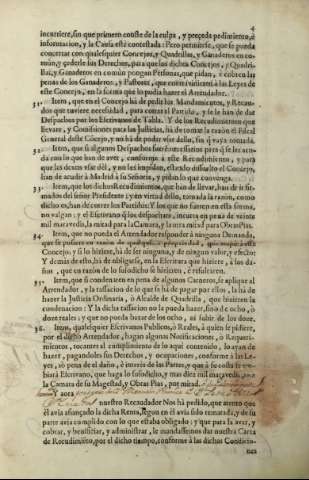 4
incurriere, sin que primero conste de la culpa, y preceda pedimiento, è
informacion, y la Causa estè contestada: Pero permitese, que se pueda
concertar con qualesquier Concejos, y Quadrillas, y Ganaderos en co-
mun, y cederle sus Derechos, para que los dichos Concejos, y Quadri-
llas, y Ganaderos en comun pongan Personas, que pidan, è cobren las
penas de los Ganaderos, y Pastores, que
este Concejo, en la forma que lo podia hazer el Arrendador.
31. Item, que en el Concejo hà de pedir los Mandamientos, y Recau-
dos que tuviere necessidad, para correr el Partido, y se le han de dar
Despachos por los Escrivanos de Tabla. Y de los Recudimientos que
llevare, y Comissiones para las Justicias, hà de tomar la razòn el Fiscal
General deste Concejo, y no hà de poder usar dello, sin que vaya tomada.
32. Item, que si algunos Despachos
dad con lo que han de aver, conforme à este Recudimiento, y para
que las dexen usar dèl, y no les impidan, estando dissuelto el Concejo,
han de acudir à Madrid à su Señoria, y pidan lo que convenga.
33. Item, que los dichos Recudimientos, que han de llevar, han de ir fir-
mados del señor Presidente; y en virtud dèllos, tomada la razòn, como
dicho es, han de correr los Partidos: Y los que no fueren en esta forma,
no valgan: y el Escrivano que los despachare, incurra en pena de veinte
mil maravedis, la mitad para la Camara, y la otra mitad para Obras Pias.
34. Item, que no pueda el Arrendador responder à ninguna Demanda,
que se pusiere en razòn de qualquier propriedad, que toque à este
Concejo; y si lo hiziere, hà de ser ninguna, y de ningun valor, y efecto:
Y demàs de esto, hà de obligarse, en la Escritura que hiziere, à los da-
ños, que en razòn de lo susodicho se hizieren, è resultaren.
35. Item, que si condenare en pena de algunos Carneros, se aplique al
Arrendador, y la tassacion de lo que se hà de pagar por ellos, la hà de
hazer la Justicia Ordinaria, ò Alcalde de Quadrilla, que hizieren la
condenacion: Y la dicha tassacion no la pueda hazer, sino de ocho, ò
doze reales, y que no pueda baxar de los ocho, ni subir de los doze.
36. Item, qualesquier Escrivanos Publicos, ò Reales, à quien se pidiere,
por el dicho Arrendador, hagan algunas Notificaciones, ò Requeri-
mientos, tocantes al cumplimiento de lo aqui contenido, lo ayan de
hazer, pagandoles sus Derechos, y ocupaciones, conforme à las Le-
yes, sò pena de el daño, è interès de las Partes, y que à su costa se em-
biarà Escrivano, que haga lo susodicho, y mas diez mil maravedis, para
la Camara de su Magestad, y Obras Pias, por mitad.
Y aora
nuestro Recaudador Nos hà pedido, que atento que
èl avia afiançado la dicha Renta, segun en èl avia sido rematada, y de su
parte avia cumplido con lo que estaba obligado: y que para la aver, y
cobrar, y beneficiar, y administrar, le mandassemos dar nuestra Carta
de Recudimiento, por el dicho tiempo, conforme à las dichas Condicio-
nes